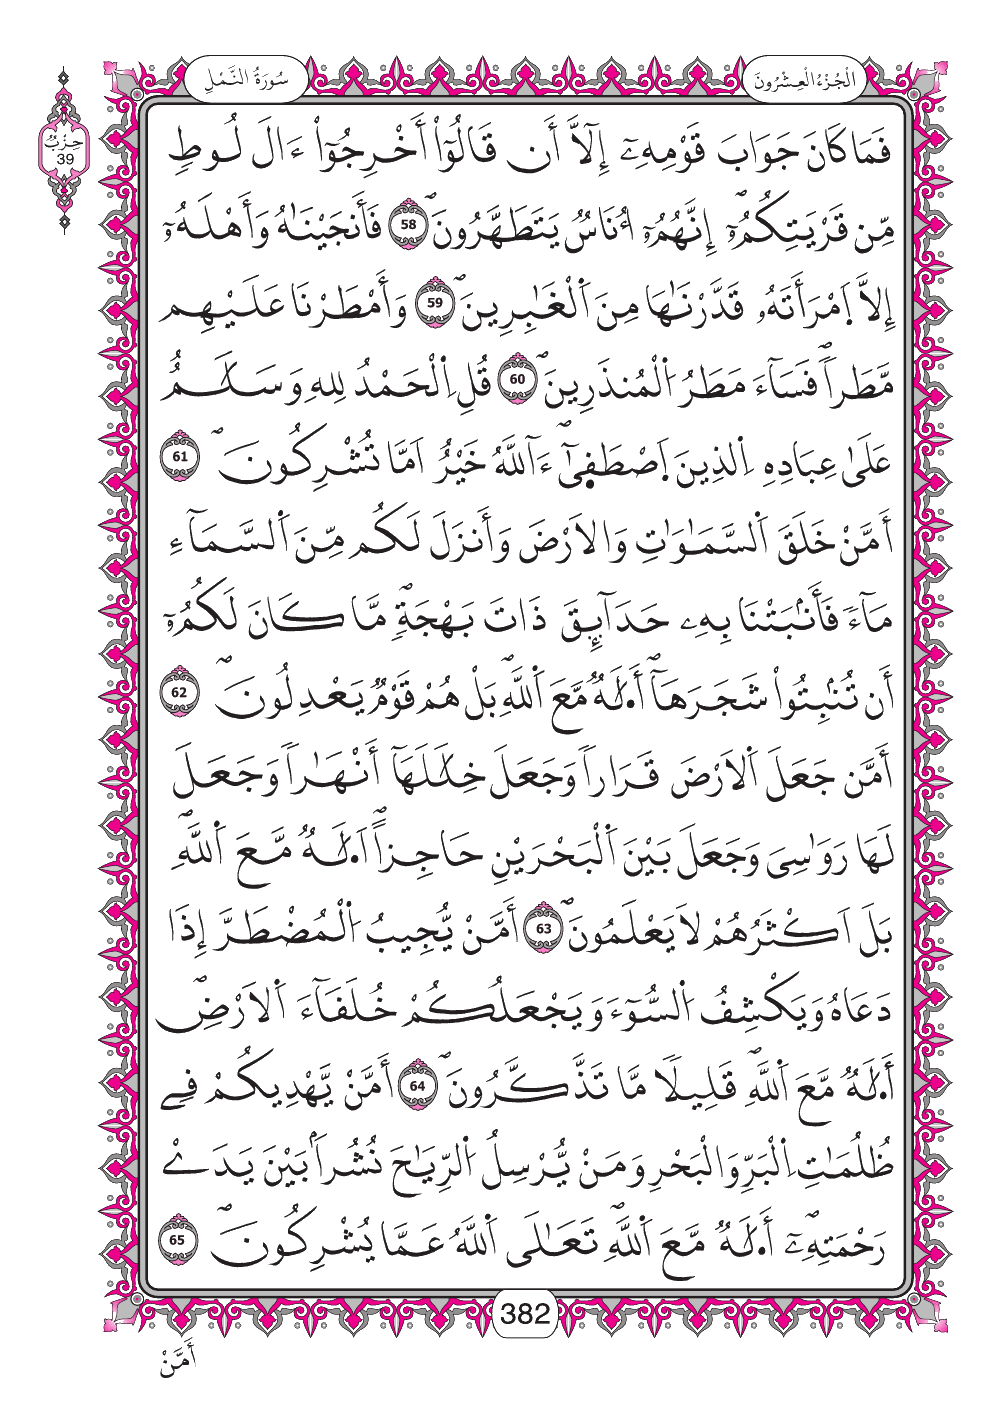 الْجُزْءُ الْعِشْرُونَ
سُورَةُ النَّمْلِ
حِزْبُ
39
فَمَا كَانَ جَوَابَ قَوْمِهِۦٓ إِلَّآ أَن قَالُوٓاْ أَخْرِجُوٓاْ ءَالَ لُوطٖ
مِّن قَرْيَتِكُمُۥٓۖ إِنَّهُمُۥٓ أُنَاسٞ يَتَطَهَّرُونَۖ 58 فَأَنجَيْنَٰهُ وَأَهْلَهُۥٓ
إِلَّا اَ۪مْرَأَتَهُۥ قَدَّرْنَٰهَا مِنَ اَ۬لْغَٰبِرِينَۖ 59 وَأَمْطَرْنَا عَلَيْهِم
مَّطَراٗۖ فَسَآءَ مَطَرُ اُ۬لْمُنذَرِينَۖ 60 قُلِ اِ۬لْحَمْدُ لِلهِ وَسَلَٰمٌ
عَلَىٰ عِبَادِهِ اِ۬لذِينَ اَ۪صْطَفۭيٰٓۖ ءَآللَّهُ خَيْرٌ اَمَّا تُشْرِكُونَۖ 61
أَمَّنْ خَلَقَ اَ۬لسَّمَٰوَٰتِ وَالَارْضَ وَأَنزَلَ لَكُم مِّنَ اَ۬لسَّمَآءِ
مَآءٗ فَأَنۢبَتْنَا بِهِۦ حَدَآئِقَ ذَاتَ بَهْجَةٖۖ مَّا كَانَ لَكُمُۥٓ
أَن تُنۢبِتُواْ شَجَرَهَآۖ أَ۟لَٰهٞ مَّعَ اَ۬للَّهِۖ بَلْ هُمْ قَوْمٞ يَعْدِلُونَۖ 62
أَمَّن جَعَلَ اَ۬لَارْضَ قَرَاراٗ وَجَعَلَ خِلَٰلَهَآ أَنْهَٰراٗ وَجَعَلَ
لَهَا رَوَٰسِيَ وَجَعَلَ بَيْنَ اَ۬لْبَحْرَيْنِ حَاجِزاًۖ اَ۟لَٰهٞ مَّعَ اَ۬للَّهِۖ
بَلَ اَكْثَرُهُمْ لَا يَعْلَمُونَۖ 63 أَمَّنْ يُّجِيبُ اُ۬لْمُضْطَرَّ إِذَا
دَعَاهُ وَيَكْشِفُ اُ۬لسُّوٓءَ وَيَجْعَلُكُمْ خُلَفَآءَ اَ۬لَارْضِۖ
أَ۟لَٰهٞ مَّعَ اَ۬للَّهِۖ قَلِيلاٗ مَّا تَذَّكَّرُونَۖ 64 أَمَّنْ يَّهْدِيكُمْ فِے
ظُلُمَٰتِ اِ۬لْبَرِّ وَالْبَحْرِ وَمَنْ يُّرْسِلُ اُ۬لرِّيَٰحَ نُشُراَۢ بَيْنَ يَدَےْ
رَحْمَتِهِۦٓۖ أَ۟لَٰهٞ مَّعَ اَ۬للَّهِۖ تَعَٰلَى اَ۬للَّهُ عَمَّا يُشْرِكُونَۖ 65
382
أَمَّنْ